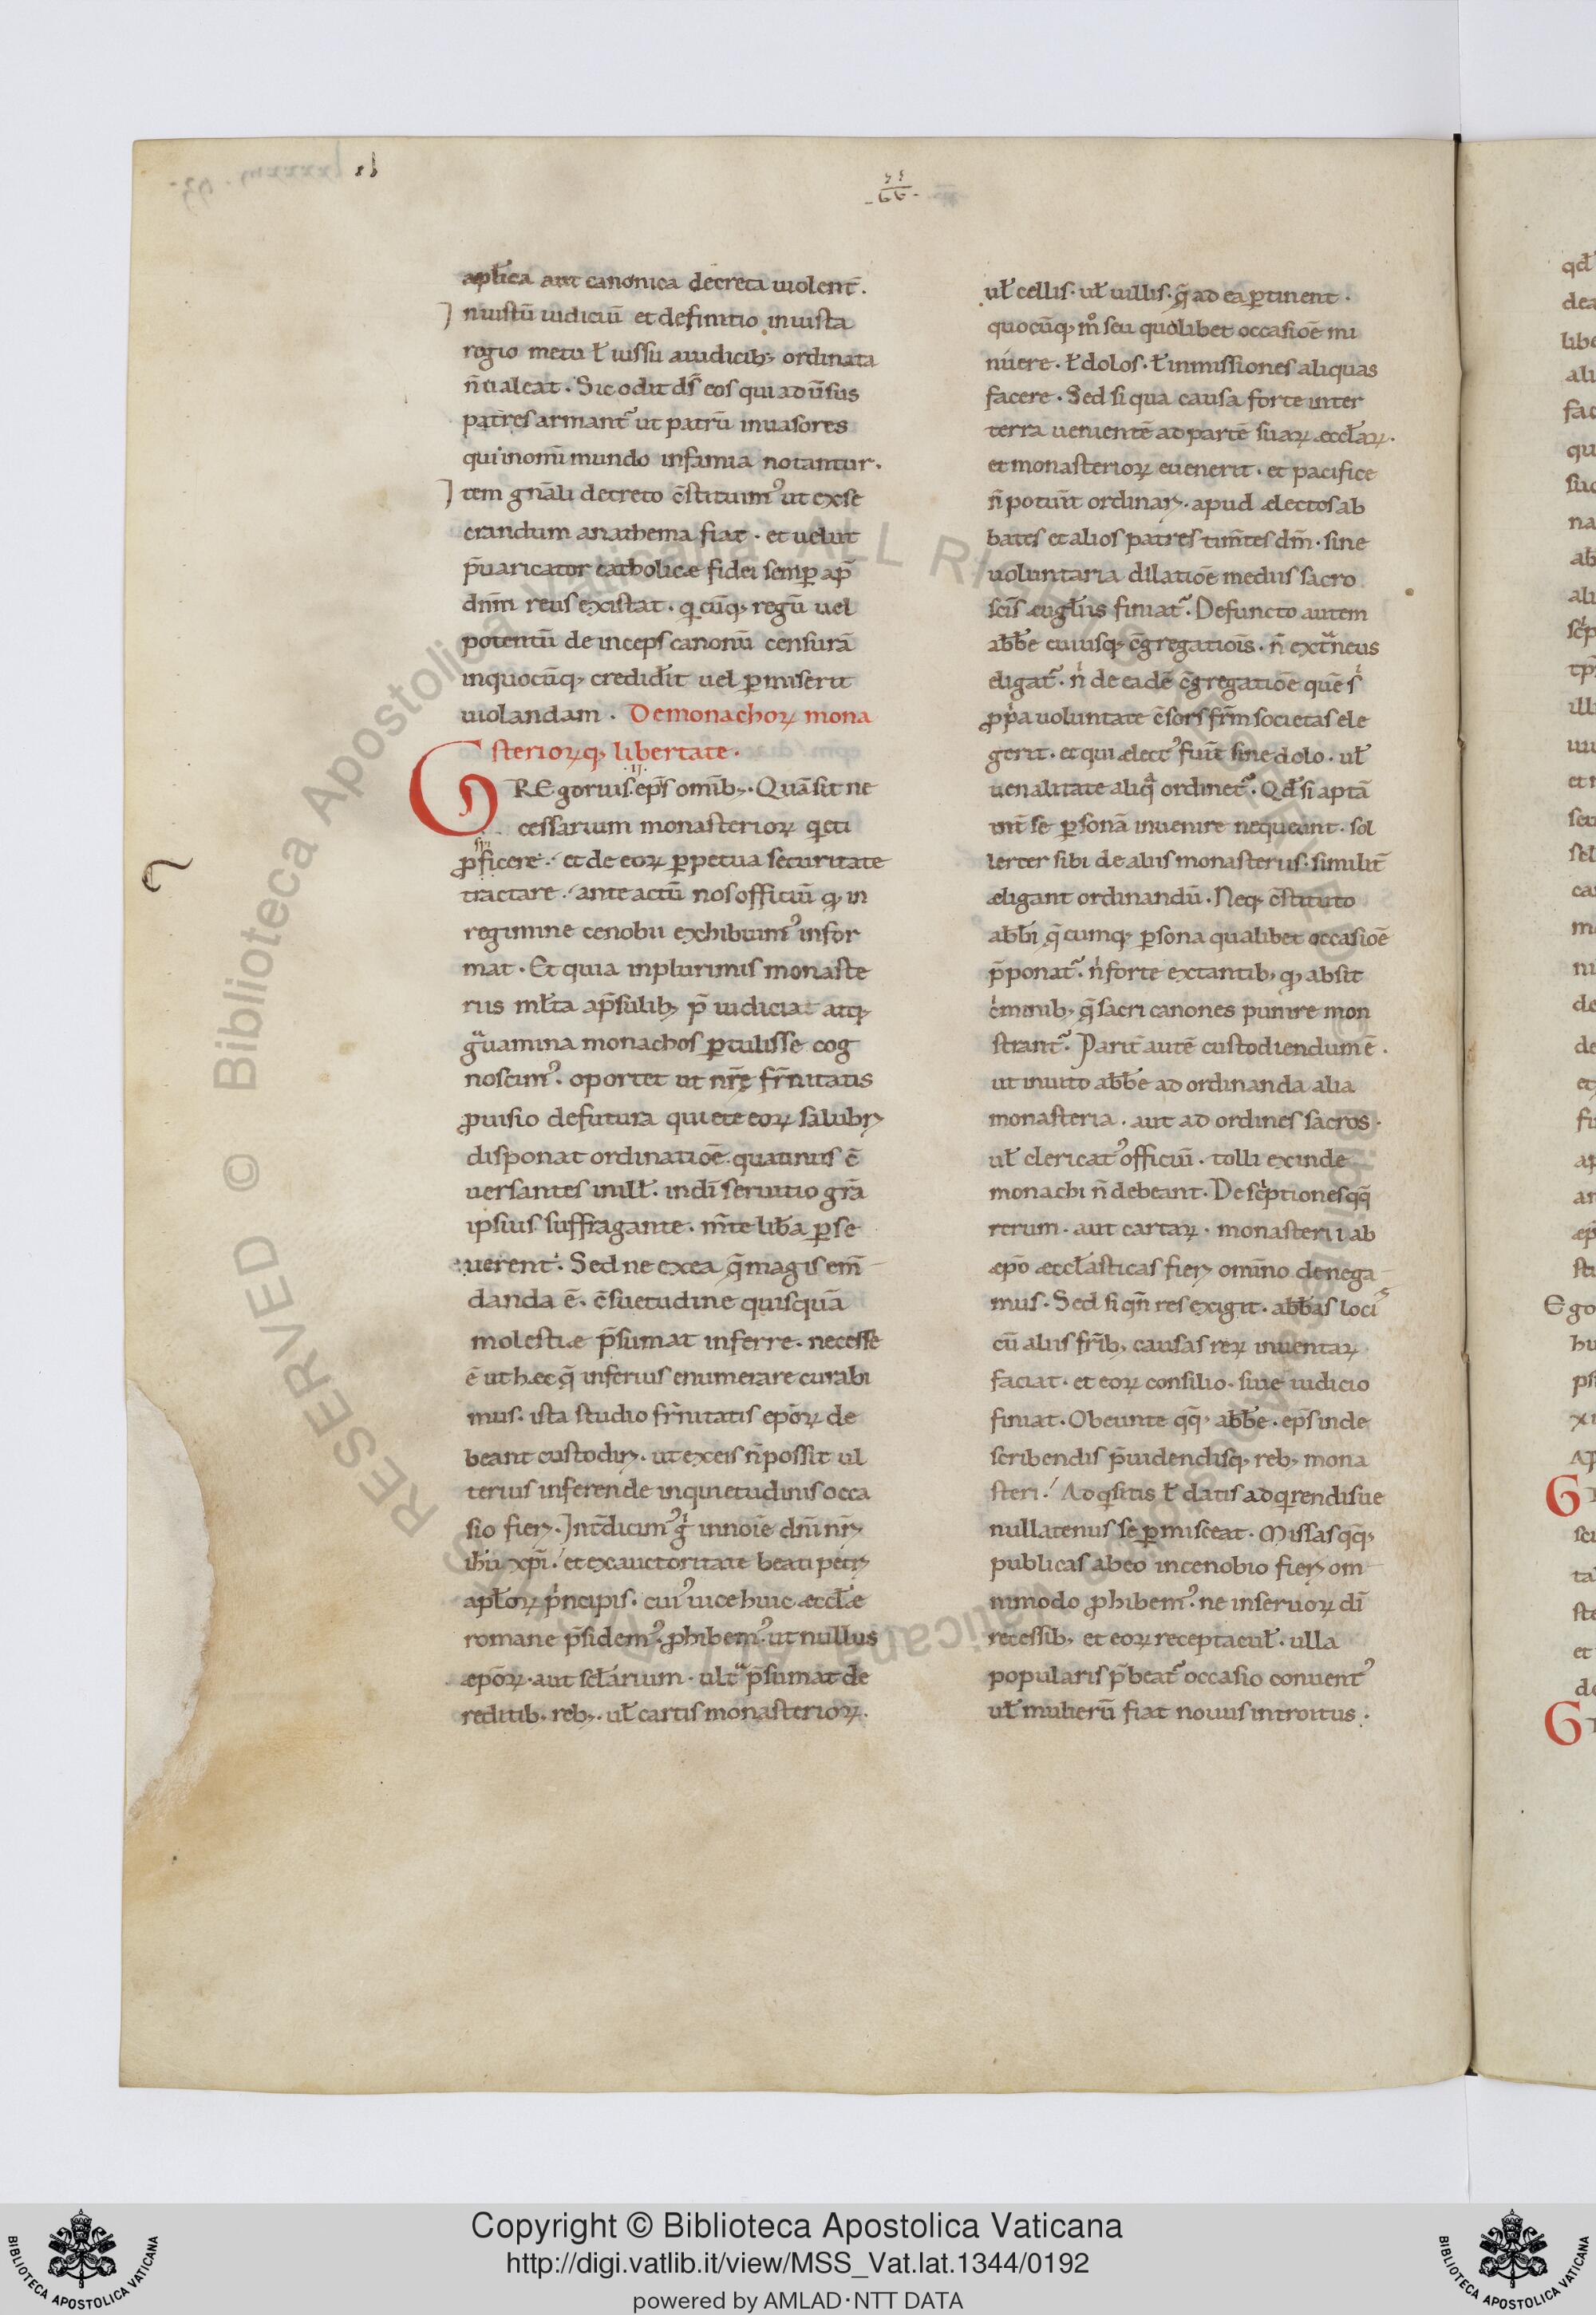 apl̄ica aut canonica decreta uiolent̄.
Iniustū iudiciū et definitio iniusta
regio metu ł iussu a iudicib; ordinata
n̄ ualeat. Sic odit ds̄ eos qui adūsus
patres armant᷑ ut patrū inuasores
qui in om̄i mundo infamia notantur.
Item gn̄ali decreto c̄stituim᾽ ut exse
crandum anathema fiat. et uelut
p̄uaricator catholicæ fidei semꝑ ap̄
dnm̄ reus existat. qͥcūq; regū uel
potentū deinceps canonū censurā
in quocūq; credid̄it uel ꝑmiserit
uiolandam. De monachoꝝ mona
sterioꝝq; libertate.
.ij.
GREgorius ep̄s omīb;. Quā sit ne
cessarium monasterioꝝ qͥeti
ꝓspicere. et de eoꝝ ꝑpetua securitate
tractare. ante actū nos officiū q; in
regimine cenobii exhibuim᾽ infor
mat. Et quia in plurimis monaste
riis ml̄ta a p̄sulib; p̄iudicia atq;
gͣuamina monachos ꝑtulisse cog
noscim᾽. oportet ut nr̄ę fr̄nitatis
ꝓuisio de futura quiete eoꝝ salubrꝭ
disponat ordinatioē. quatinus c̄
uersantes in ill̄. in dī seruitio grā
ipsius suffragante. m̄te lib̄a ꝑse
uerent. Sed ne ex ea q̄ magis em̄
danda ē. c̄suetudine quisquā
molestiæ p̄sumat inferre. necesse
ē ut hæc q̄ inferius enumerare curabi
mus. ista studio fr̄nitatis epōꝝ de
beant custodirꝭ. ut ex eis n̄ possit ul
terius inferende inquietudinis occa
sio fierꝭ. Int̄dicim᾽ gͥ in noīe dn̄i nr̄ꝭ
ih̄u xp̄i. et ex auctoritate beati petrꝭ
apl̄oꝝ pͥncipis. cui᾽ uice huic æccl̄æ
romane p̄sidem᾽. ꝓhibem᾽. ut nullus
æpōꝝ. aut scl̄arium. ultͣ p̄sumat de
reditib. reb;. ul̄ cartis monasterioꝝ.
ul̄ cellis. ul̄ uillis. q̄ ad ea ꝑtinent.
quocūq; mͦ seu quolibet occasioē mi
nuere. ł dolos. ł inmissiones aliquas
facere. Sed si qua causa forte inter
terra uenientē ad partē suaꝝ æccl̄aꝝ.
et monasterioꝝ euenerit. et pacifice
n̄ potuīt ordinarꝭ. apud ælectos ab
bates et alios patres tim̄tes dm̄. sine
uoluntaria dilatioē mediis sacro
scīs æuglīis finiat᷑. Defuncto autem
abb̄e cuiusq; c̄gregatiōis. n̄ extͣneus
eligat᷑. nͥ de eadē c̄gregatioē quē sͥ
ꝓpͥa uoluntate c̄sors fr̄m societas ele
gerit. et qui ælect᾽ fuīt sine dolo. ul̄
uenalitate aliqͣ ordinet᷑. Qd̄ si aptā
int̄ se ꝑsonā inuenire nequeant. sol
lerter sibi de aliis monasteriis. similit̄
æligant ordinandū. Neq; c̄stituto
abb̄i q̄cumq; ꝑsona qualibet occasioē
p̄ponat᷑. nͥ forte extantib; q; absit
cͥminib; q̄ sacri canones punire mon
strant᷑. Parit̄ autē custodiendum ē.
ut inuito abb̄e ad ordinanda alia
monasteria. aut ad ordines sacros.
ul̄ clericat᾽ officiū. tolli exinde
monachi n̄ debeant. Descͥptiones qq̄
rerum. aut cartaꝝ. monasterii ab
æpō æccl̄asticas fierꝭ omīno denega
mus. Sed si qn̄ res exigit. abb̄as loci
cū aliis fr̄ib; causas reꝝ inuentaꝝ
faciat. et eoꝝ consilio. siue iudicio
finiat. Obeunte qq̄; abb̄e. ep̄s inde
scribendis p̄uidendisq; reb; mona
sterii. Adqͥsitis ł datis adqͥrendisue
nullatenus se ꝑmisceat. Missas qq̄;
publicas ab eo in cenobio fierꝭ om
nimodo ꝓhibem᾽. ne in seruoꝝ dī
recessib; et eoꝝ receptacul̄. ulla
popularis p̄beat᷑ occasio conuent᾽
ul̄ mulierū fiat nouus introitus.
Copyright © Biblioteca Apostolica Vaticana
http://digi.vatlib.it/view/MSS_Vat.lat.1344/0192
powered by AMLAD·NTT DATA